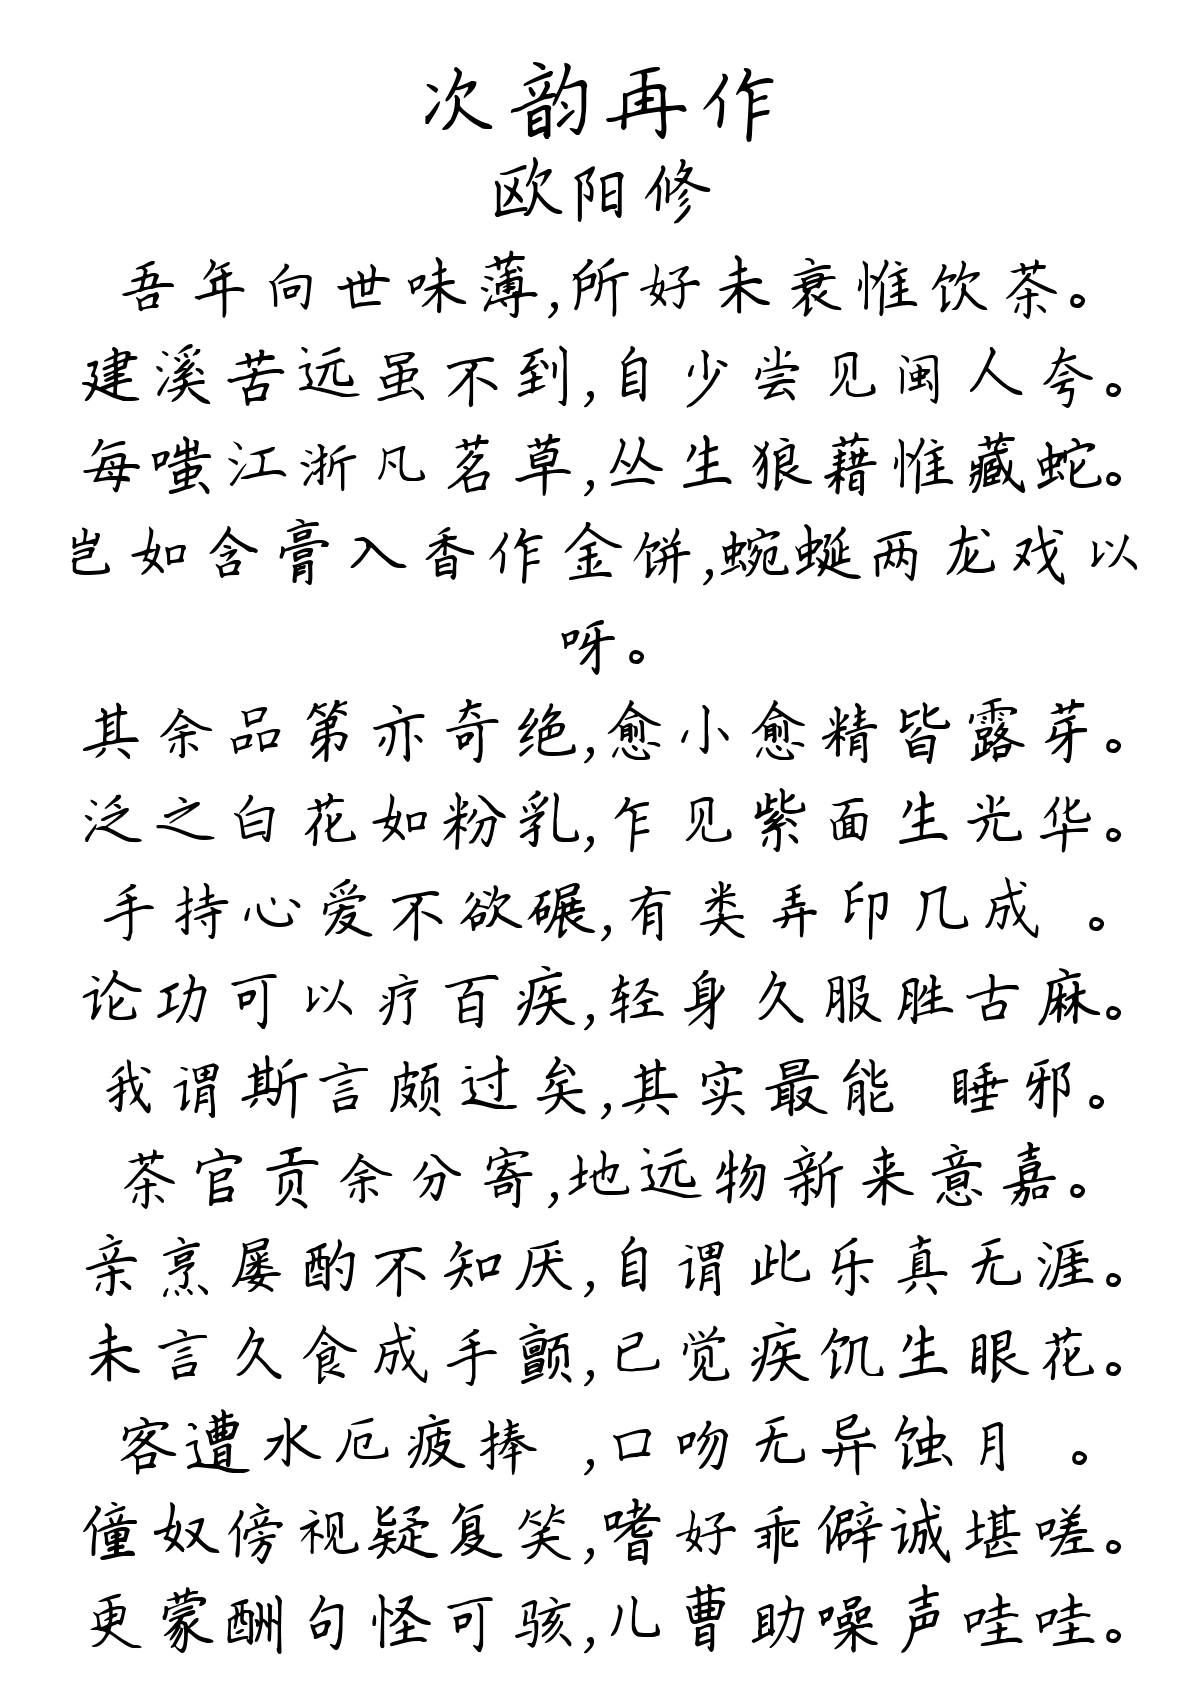 次韵再作
欧阳修
吾年向世味薄,所好未衰惟饮茶。
建溪苦远虽不到,自少尝见闽人夸。
每嗤江浙凡茗草,丛生狼藉惟藏蛇。
岂如含膏入香作金饼,蜿蜒两龙戏以
呀。
其余品第亦奇绝,愈小愈精皆露芽。
泛之白花如粉乳,乍见紫面生光华。
手持心爱不欲碾,有类弄印几成 。
论功可以疗百疾,轻身久服胜古麻。
我谓斯言颇过矣,其实最能 睡邪。
茶官贡余分寄,地远物新来意嘉。
亲烹屡酌不知厌,自谓此乐真无涯。
未言久食成手颤,已觉疾饥生眼花。
客遭水厄疲捧 ,口吻无异蚀月 。
僮奴傍视疑复笑,嗜好乖僻诚堪嗟。
更蒙酬句怪可骇,儿曹助噪声哇哇。